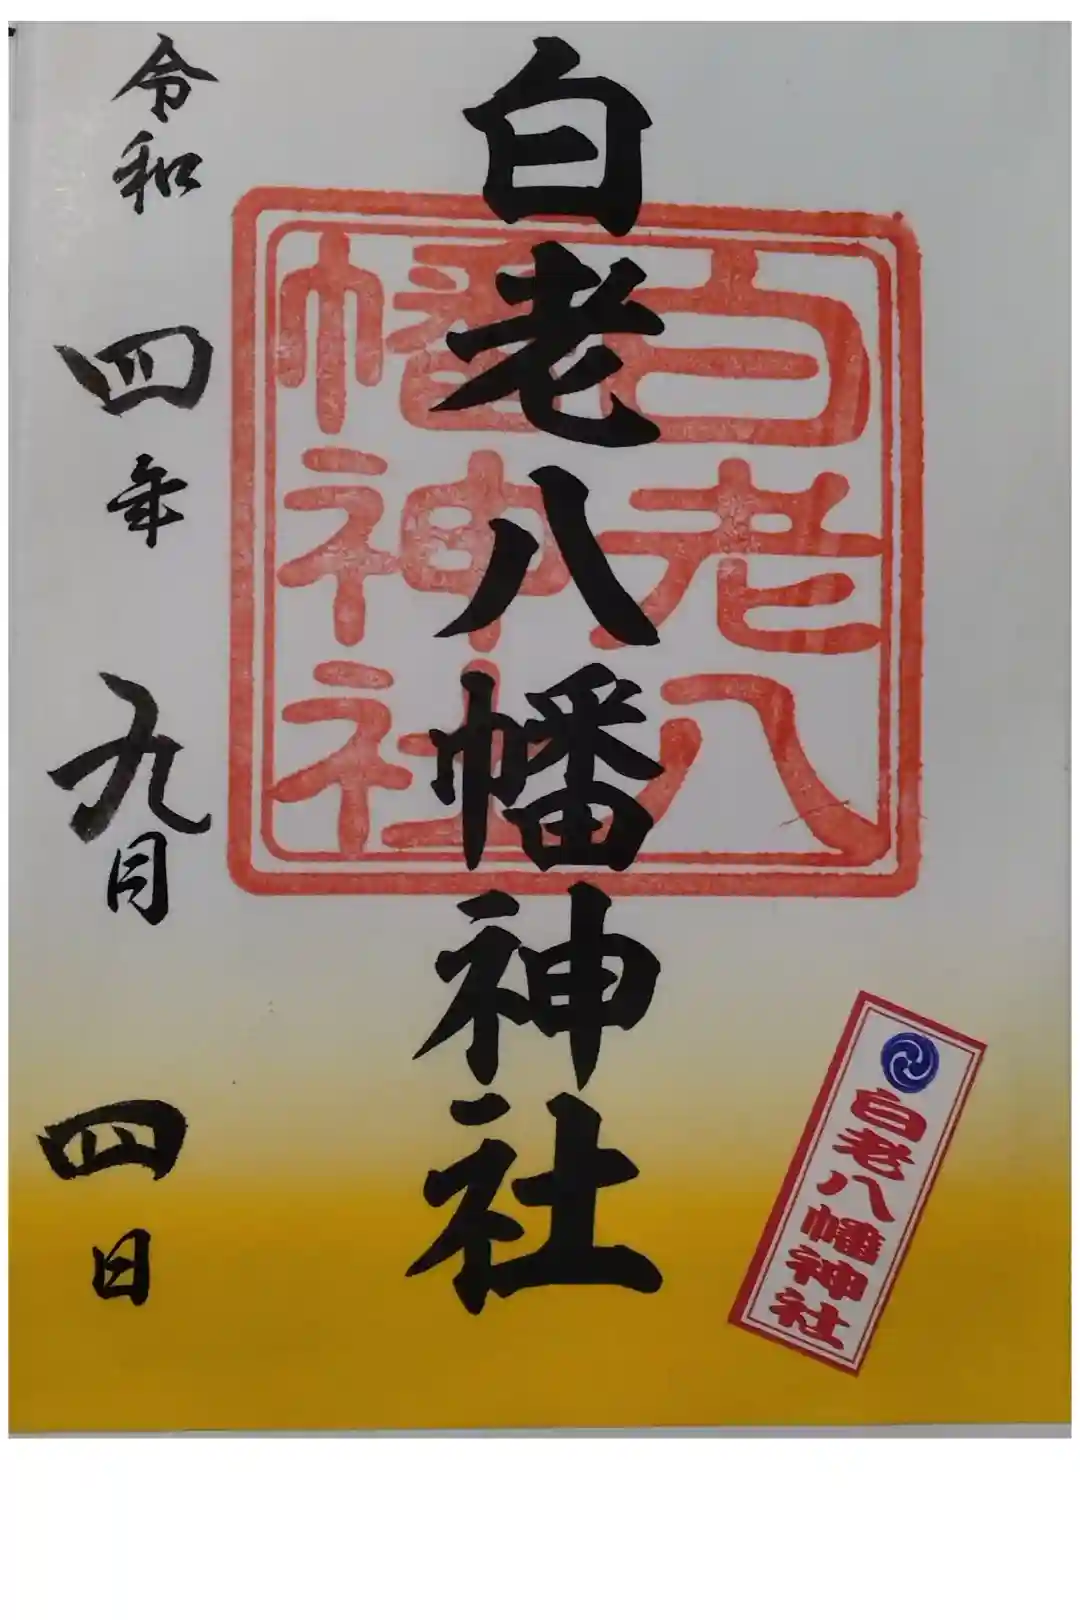 白老八幡神社
白老八
幡神社
令和四年九月四日
白老八幡神社